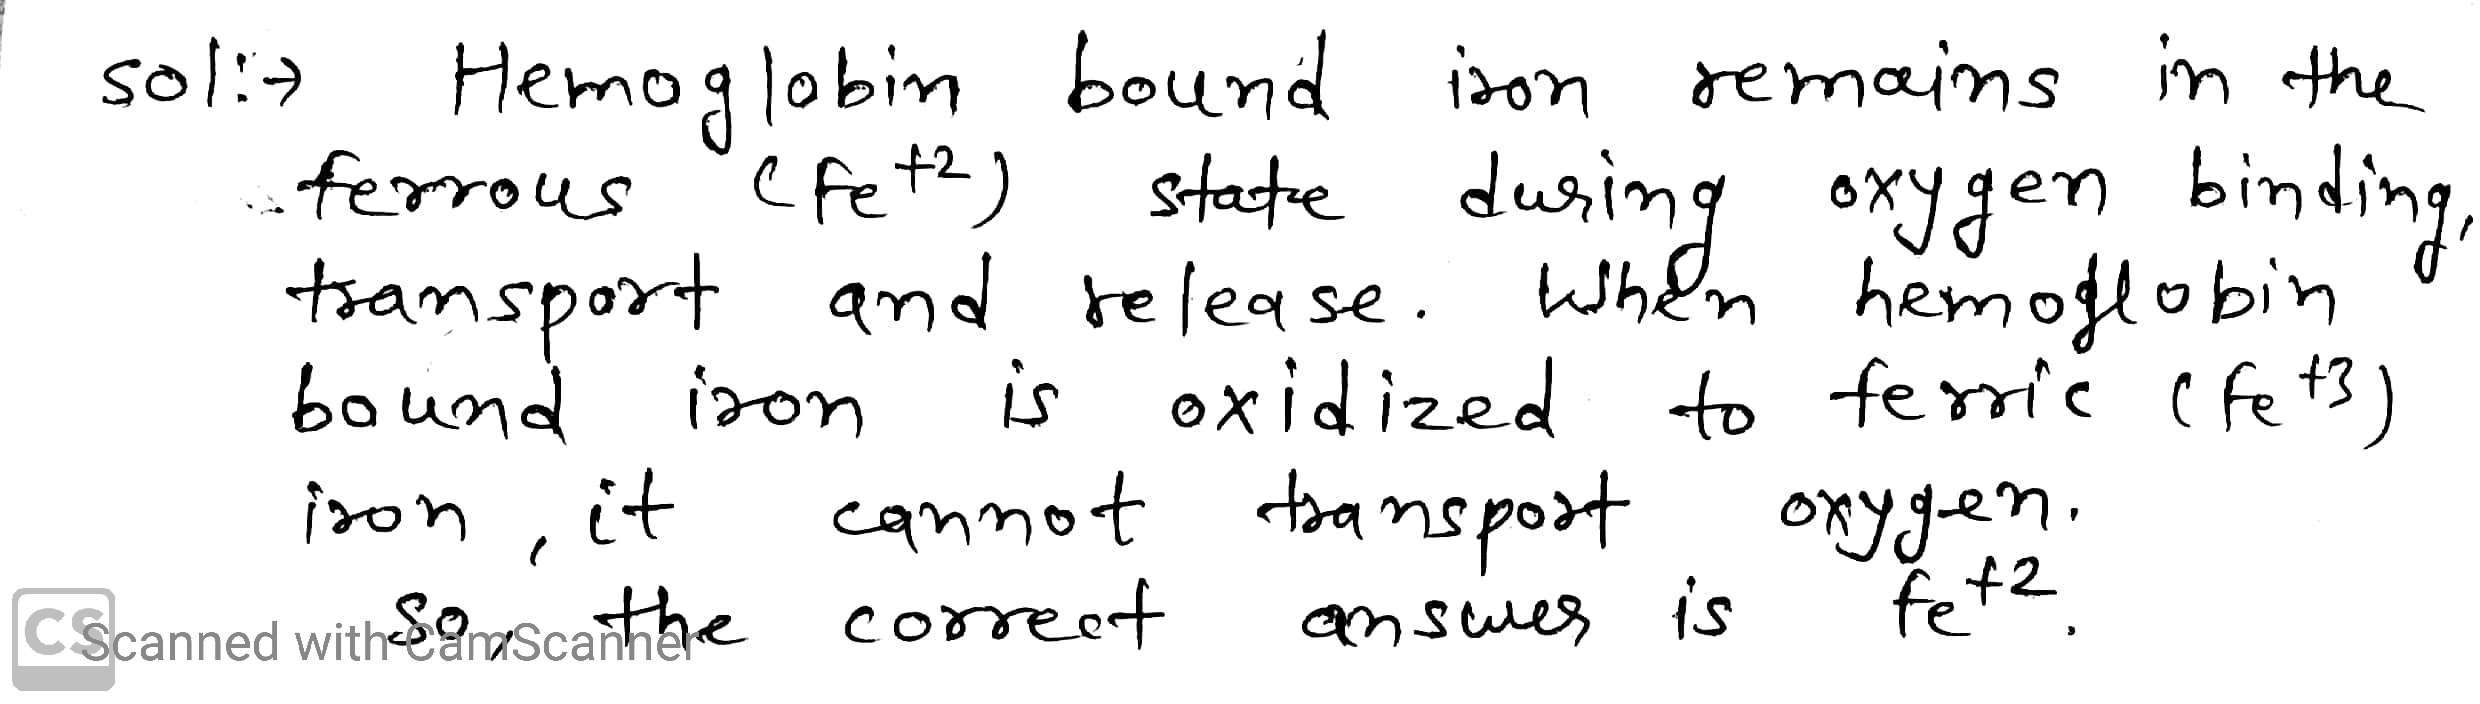 sol:→ Hemoglobin bound iron remains in the
ferrous (fe+2) state during oxygen binding,
transport and release. When hemoglobin
bound iron is oxidized to ferric (fe+3)
iron, it cannot transport oxygen.
So, the correct answer is fe+2.
CS Scanned with CamScanner